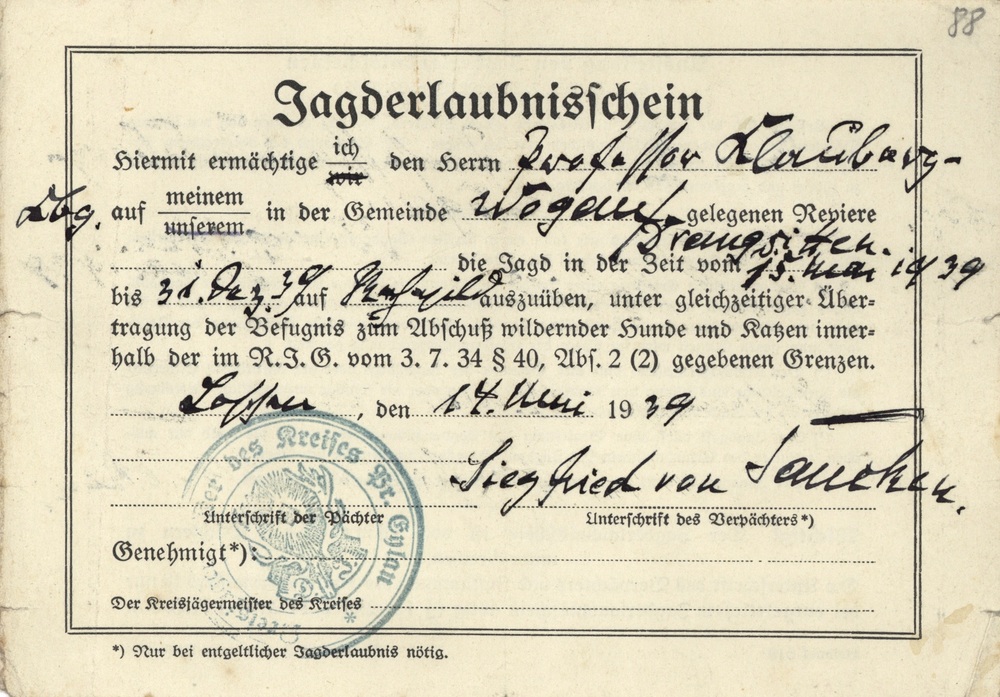 88
Jagderlaubnisschein
Hiermit ermächtige ich den Herrn Professor Clauberg-
wir
Kbg. auf meinem in der Gemeinde gelegenen Reviere
unserem
die Jagd in der Zeit vom 15. Mai 1939
bis 31. Dez. 39 auf auszuüben, unter gleichzeitiger Über-
tragung der Befugnis zum Abschuß wildernder Hunde und Katzen inner-
halb der im R.J.G. vom 3. 7. 34 § 40, Abs. 2 (2) gegebenen Grenzen.
, den 14. Mai 1939
Siegfried von
Unterschrift der Pächter Unterschrift des Verpächters*)
Genehmigt*):
Der Kreisjägermeister des Kreises
des Kreises Pr. Eylau
*) Nur bei entgeltlicher Jagderlaubnis nötig.